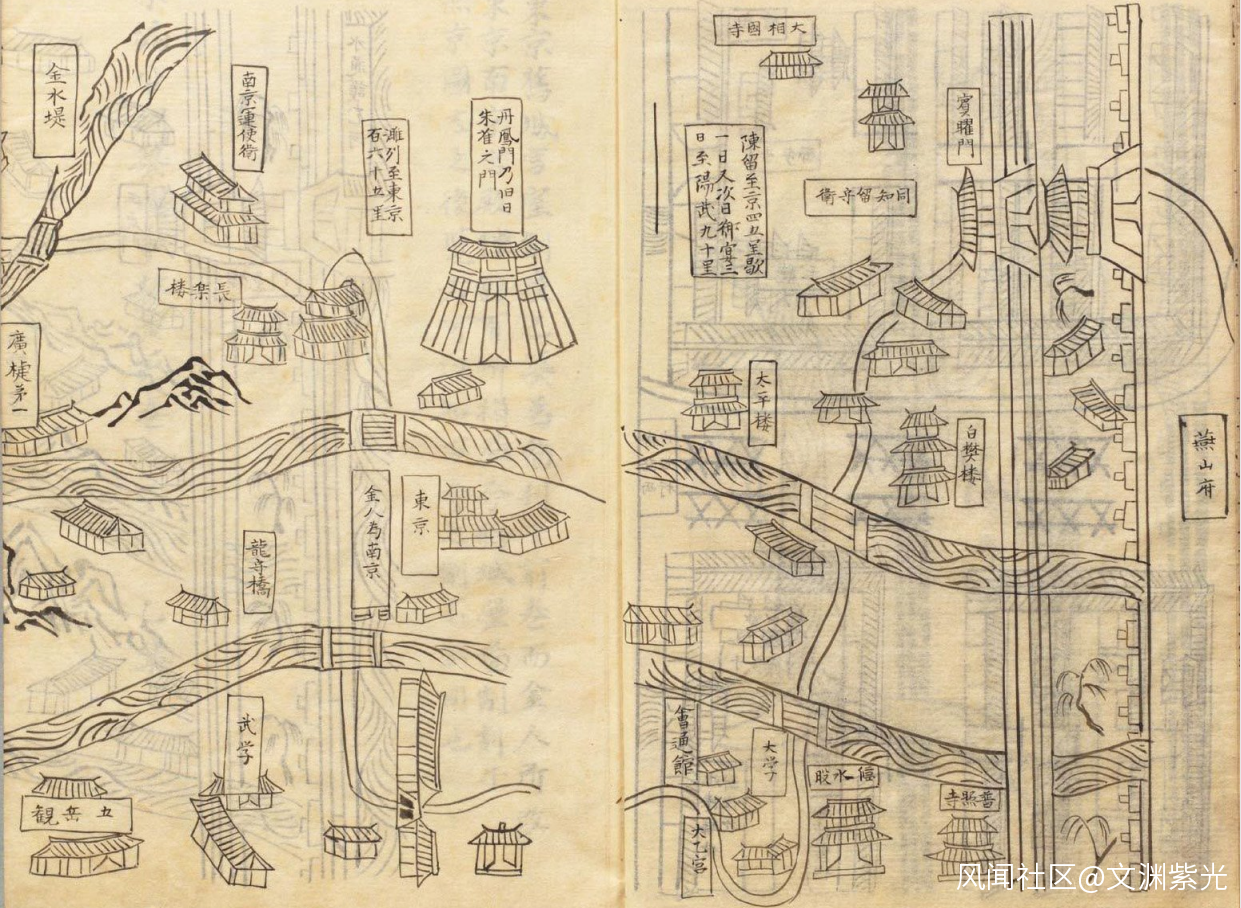 大相國寺
賓曜門
陳留至京四五里歇
一日又次日御宴三
日至陽武九十里
同知留守衙
太平楼
白樊楼
燕山府
會通館
大学
水殿
普照寺
太乙宮
丹鳳門乃旧日
朱雀之門
濰列至東京
百六十五里
南京運使衙
金水堤
長楽楼
廣捷第一
東京
金人為南京
龍守橋
武学
五岳観
风闻社区@文渊紫光